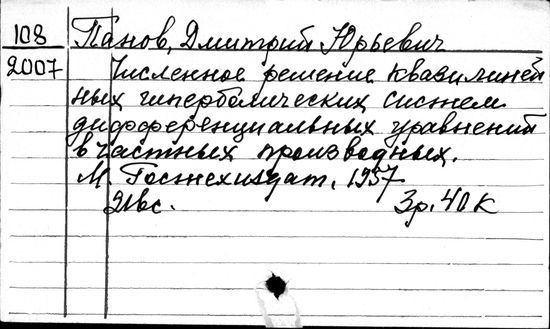 108 Панов, Дмитрий Юрьевич
2007 Численное решение квазилиней
ных гиперболических систем
дифференциальных уравнений
в частных производных.
М. Гостехиздат, 1957
216с. 3р. 40 к